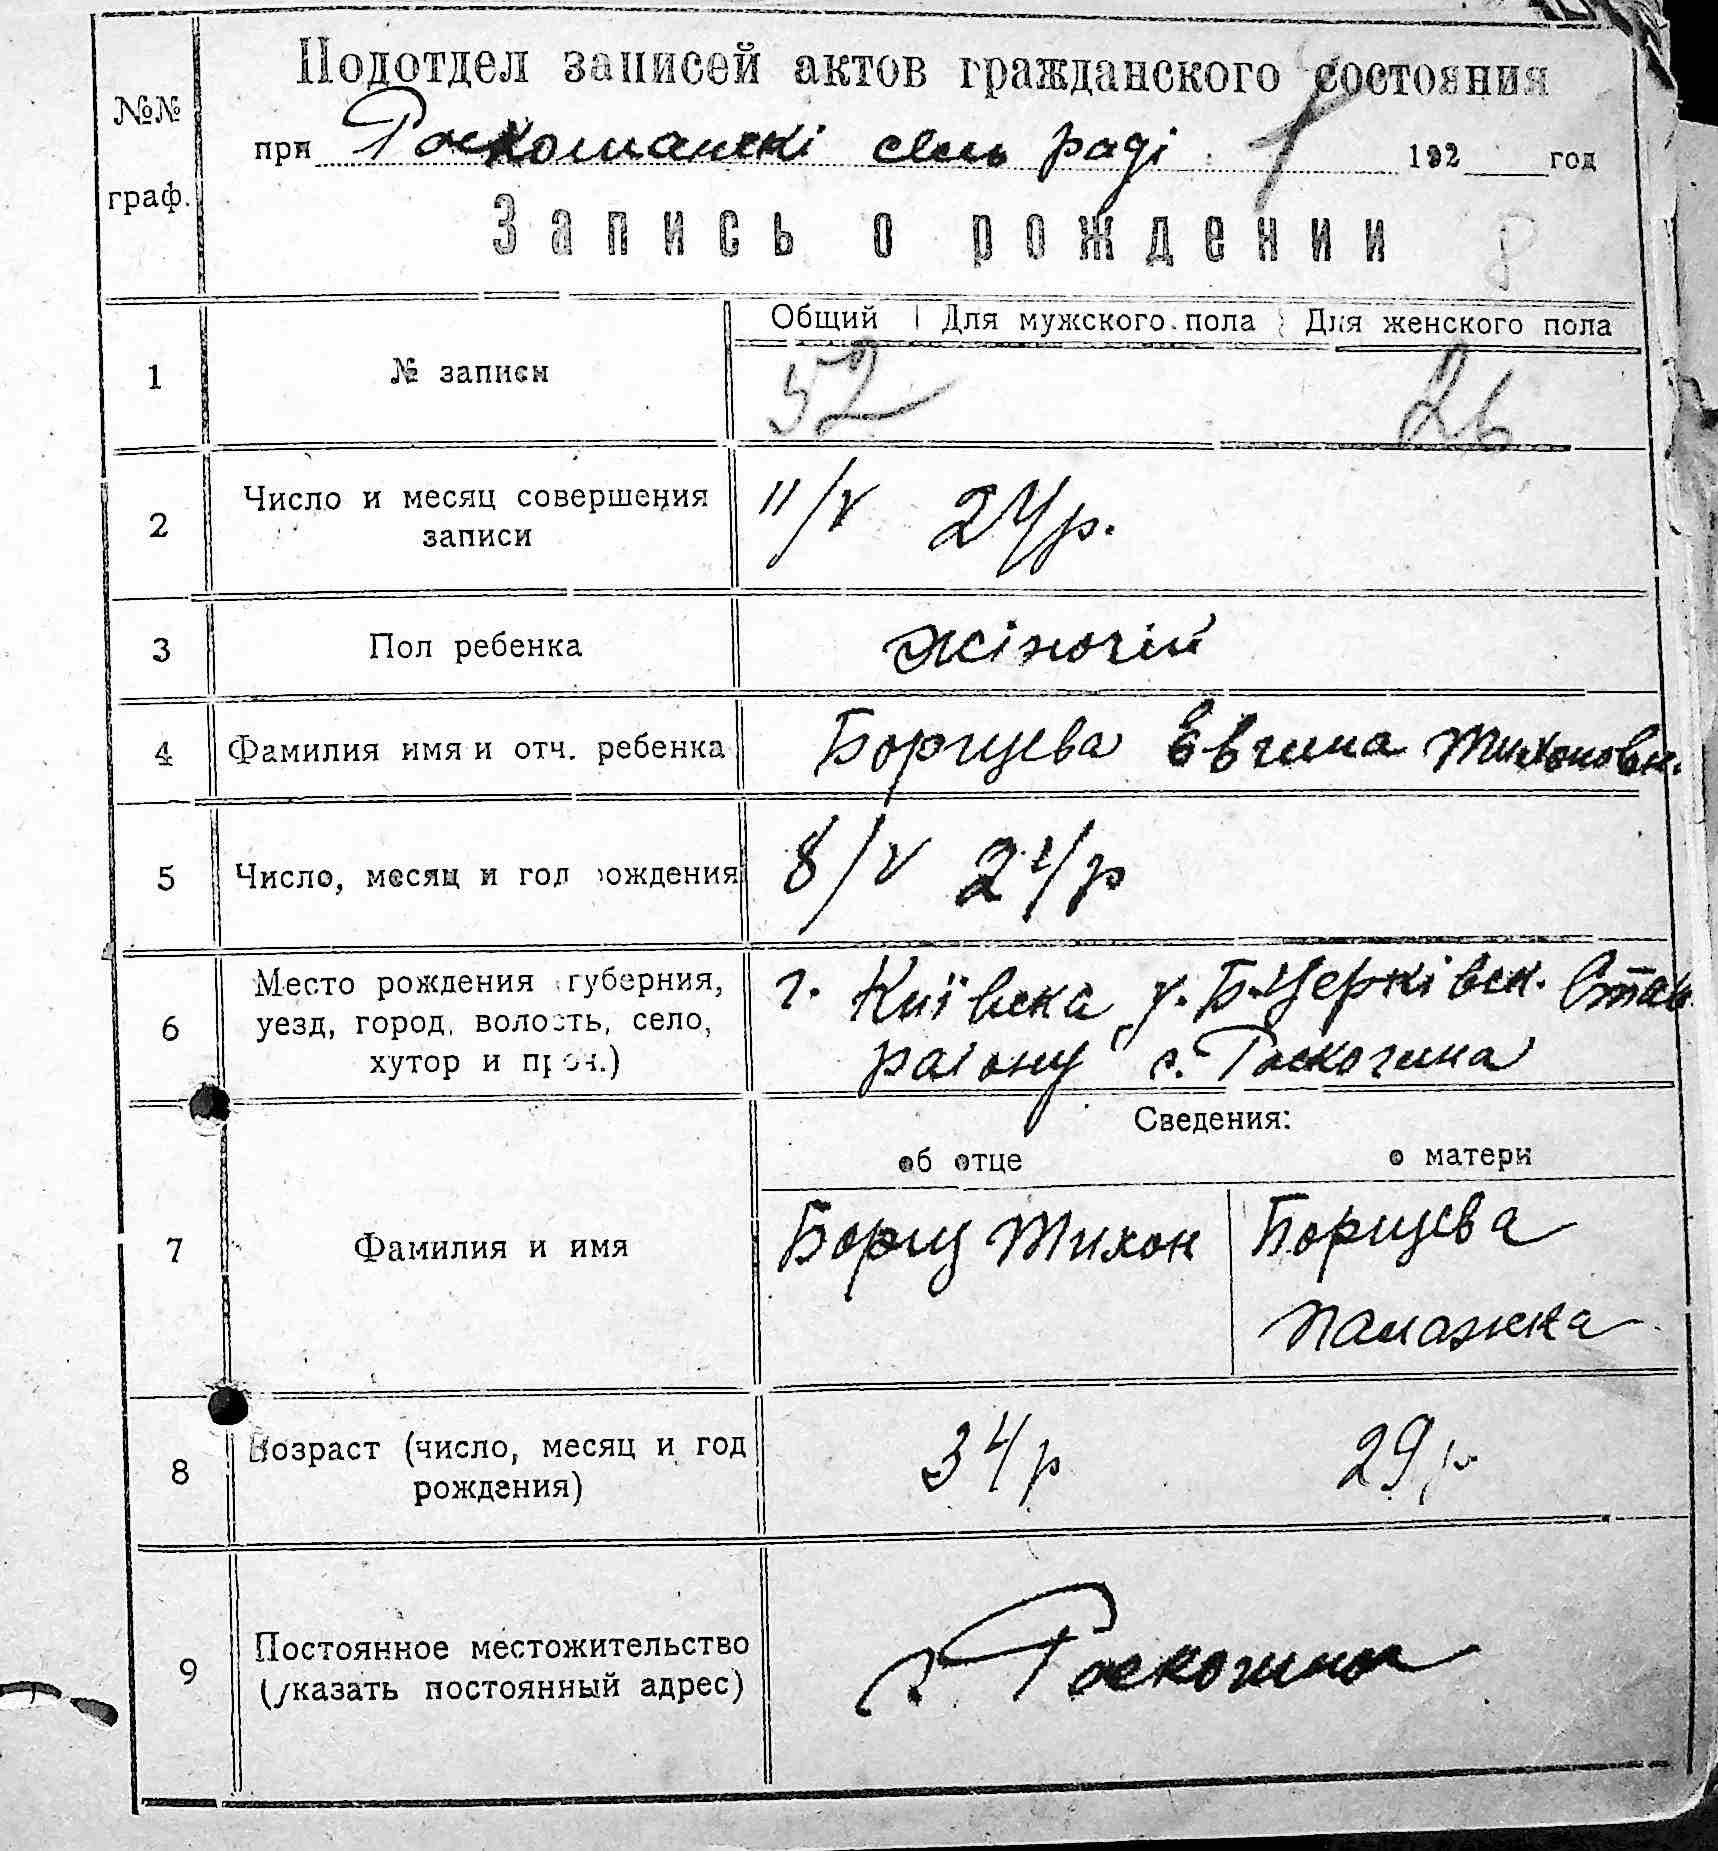 Подотдел записей актов гражданского состояния
№№ граф.
при Роскошанскі сель раді 192 год
Запись о рождении
8
Общий Для мужского пола Для женского пола
1 № записи 52 26
2 Число и месяц совершения записи 11/V 24/р.
3 Пол ребенка жіночій
4 Фамилия имя и отч. ребенка Борщева Евгина Тихоновн.
5 Число, месяц и год рождения 8/V 24/р
6 Место рождения губерния, уезд, город, волость, село, хутор и проч.) г. Київска у. Б.Церківск. Став.
раіону с. Роскошна
Сведения:
об отце о матери
7 Фамилия и имя Борщ Тихон Борщева
Палажка
8 Возраст (число, месяц и год рождения) 34 р 29 р.
9 Постоянное местожительство (указать постоянный адрес) с. Роскошна